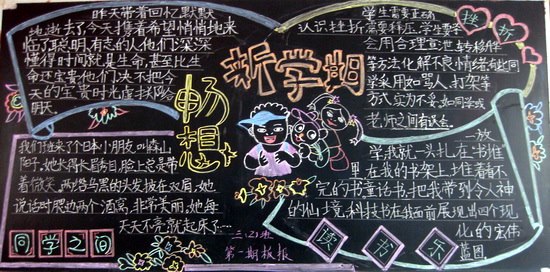 昨天带着回忆默默
地逝去了今天撞着希望悄悄地来
临了聪明有志的人他们深深
懂得时间就是生命,甚至比生
命还宝贵他们决不把今
天的宝贵时光虚抛给
明天
畅想
新学期
学生需要正确
认识挫折需要释压,学生要学
会用合理宣泄转移
等方法化解不良情绪有些同
学采用如骂人打架等
方式实为不妥如同学或
老师之间有误会
挫折
我们班来了个日本小朋友,叫森山
阳子。她长得长眉秀目,脸上总是带
着微笑。两络乌黑的头发披在双肩,她
说话时腮边两个酒窝,非常美丽。她每
天天不亮就起床了…
同学之间
三.(2)班
第一期板报
一放
学我就一头扎在书堆
里在我的书架上堆着看不
完的书童话书把我带到令人神
的仙境,科技书在我面前展现出四个现
化的宏伟
蓝图,
读书乐